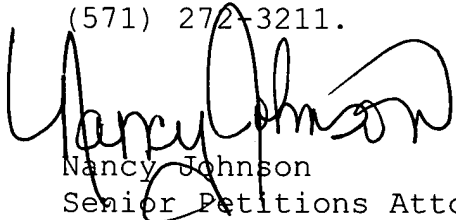 (571) 272-3211.
Nancy Johnson
Nancy Johnson
Senior Petitions Atto